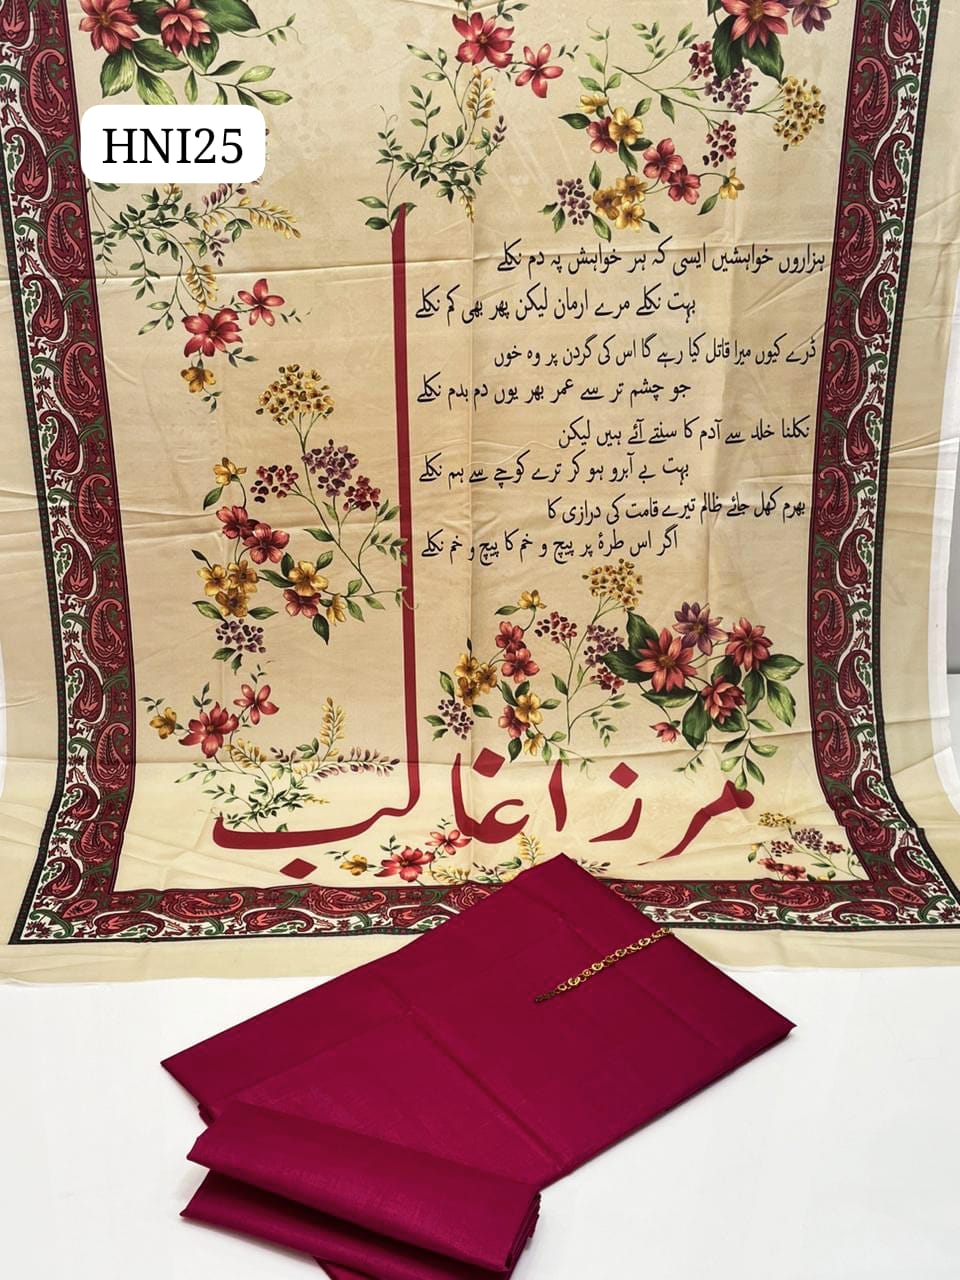 HNI25
ہزاروں خواہشیں ایسی کہ ہر خواہش پہ دم نکلے
بہت نکلے مرے ارمان لیکن پھر بھی کم نکلے
ڈرے کیوں میرا قاتل کیا رہے گا اس کی گردن پر وہ خوں
جو چشم تر سے عمر بھر یوں دم بدم نکلے
نکلنا خلد سے آدم کا سنتے آئے ہیں لیکن
بہت بے آبرو ہو کر ترے کوچے سے ہم نکلے
بھرم کھل جائے ظالم تیرے قامت کی درازی کا
اگر اس طرۂ پر پیچ و خم کا پیچ و خم نکلے
مرزا غالب